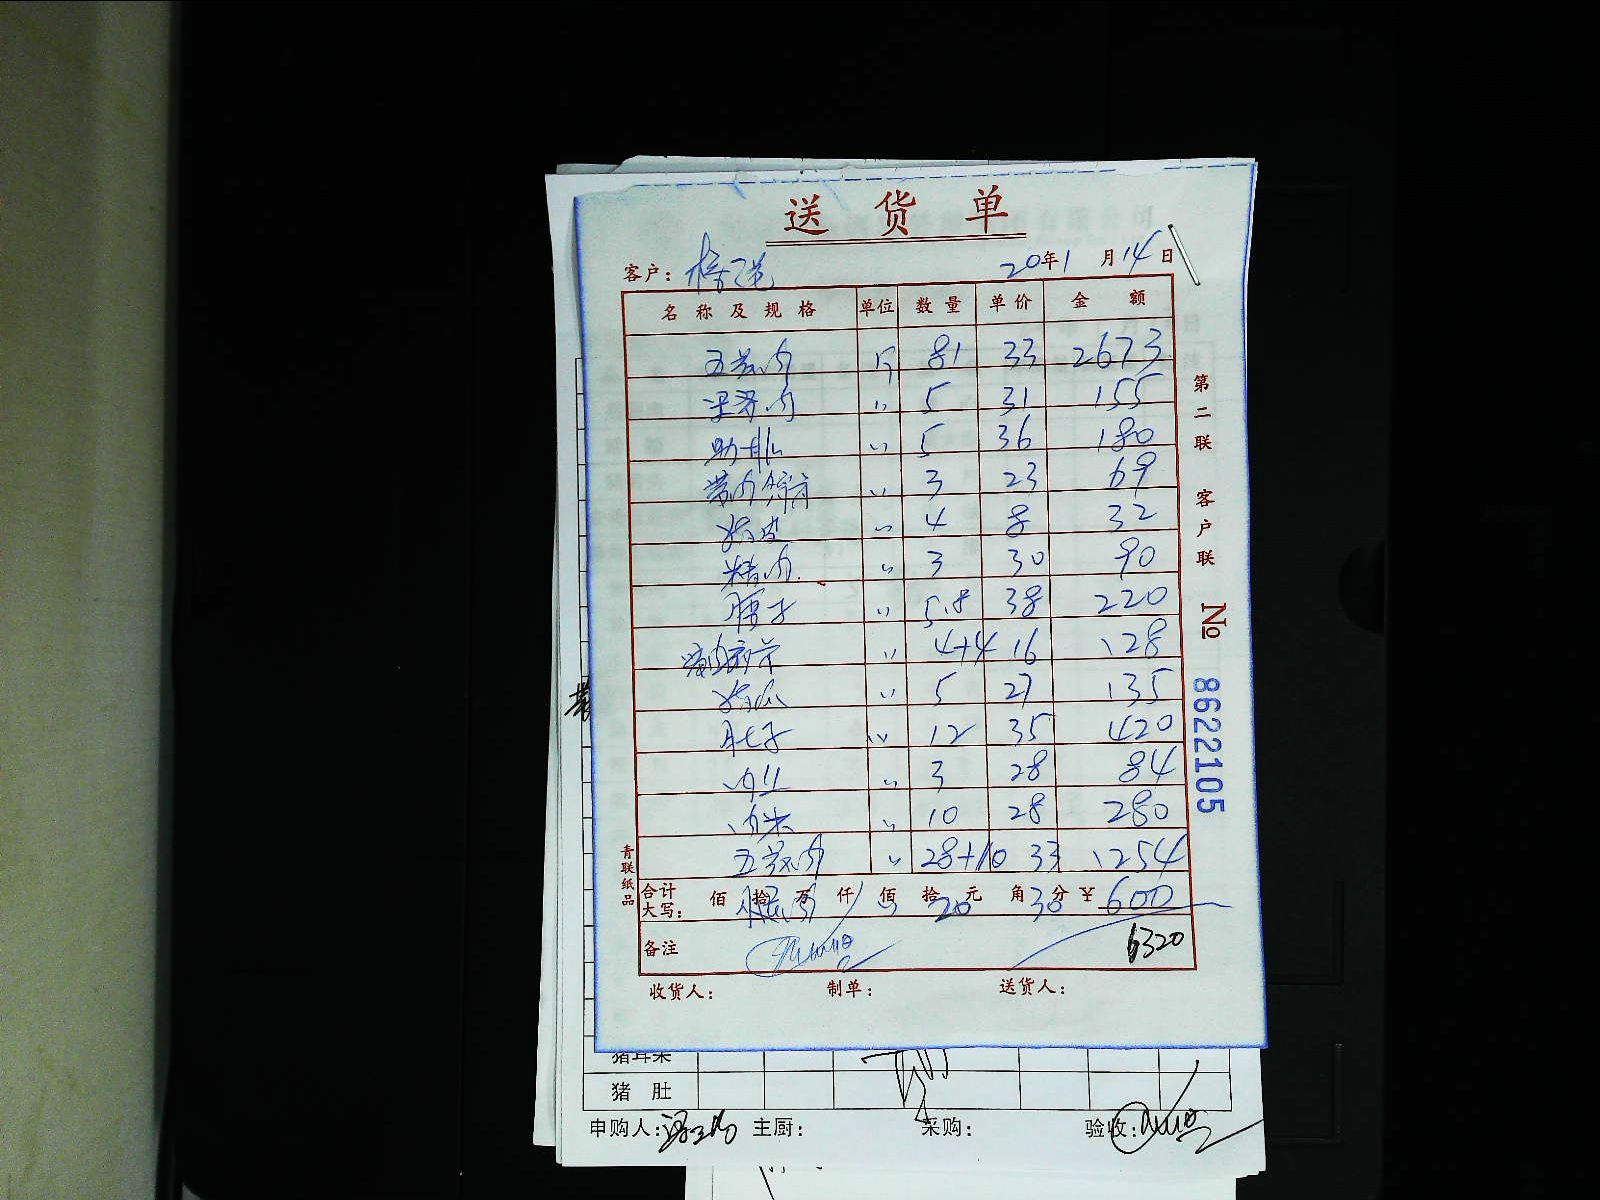 送 货 单
客户: 20年1月14日
名称及规格 单位 数量 单价 金额
五花肉 斤 81 33 2673
肉 〃 5 31 155
助排 〃 5 36 180
带肉 〃 3 23 69
〃 4 8 32
精肉 〃 3 30 90
腰子 〃 5.8 38 220
〃 4+4 16 128
〃 5 27 135
肚子 〃 12 35 420
肉丝 〃 3 28 84
肉米 〃 10 28 280
五花肉 〃 28+10 33 1254
合计大写: 佰 拾 万 仟 佰 拾 元 角 分 ¥
20 30 600
备注 6320
收货人: 制单: 送货人:
第二联 客户联
№ 8622105
青联纸品
猪耳朵
猪 肚
申购人: 主厨: 采购: 验收: